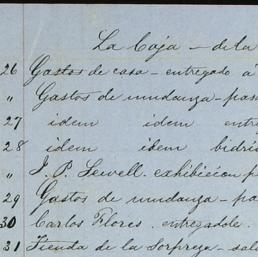 La Caja — de la
26 Gastos de casa — entregado á
" Gastos de mudanza — pas
27 idem idem entr
28 idem idem bidri
" J. P. Sewell. exhibicion p
29 Gastos de mudanza — pa
30 Carlos Flores. entregadole.
31 Tienda de la Sorpreza — sal